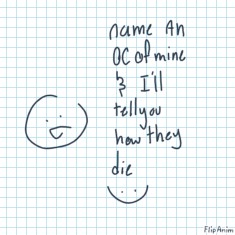 name An
OC of mine
& I'll
tell you
how they
die
FlipAnim